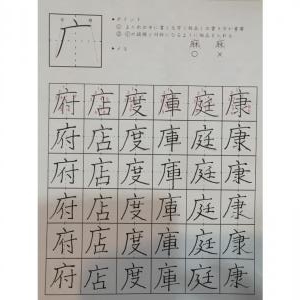 广
●ポイント
麻 麻
○ ×
●メモ
府店度庫庭康
府店度庫庭康
府店度庫庭康
府店度庫庭康
府店度庫庭康
府店度庫庭康